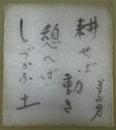 耕せば動き
憩へば
しづかな土
草田男